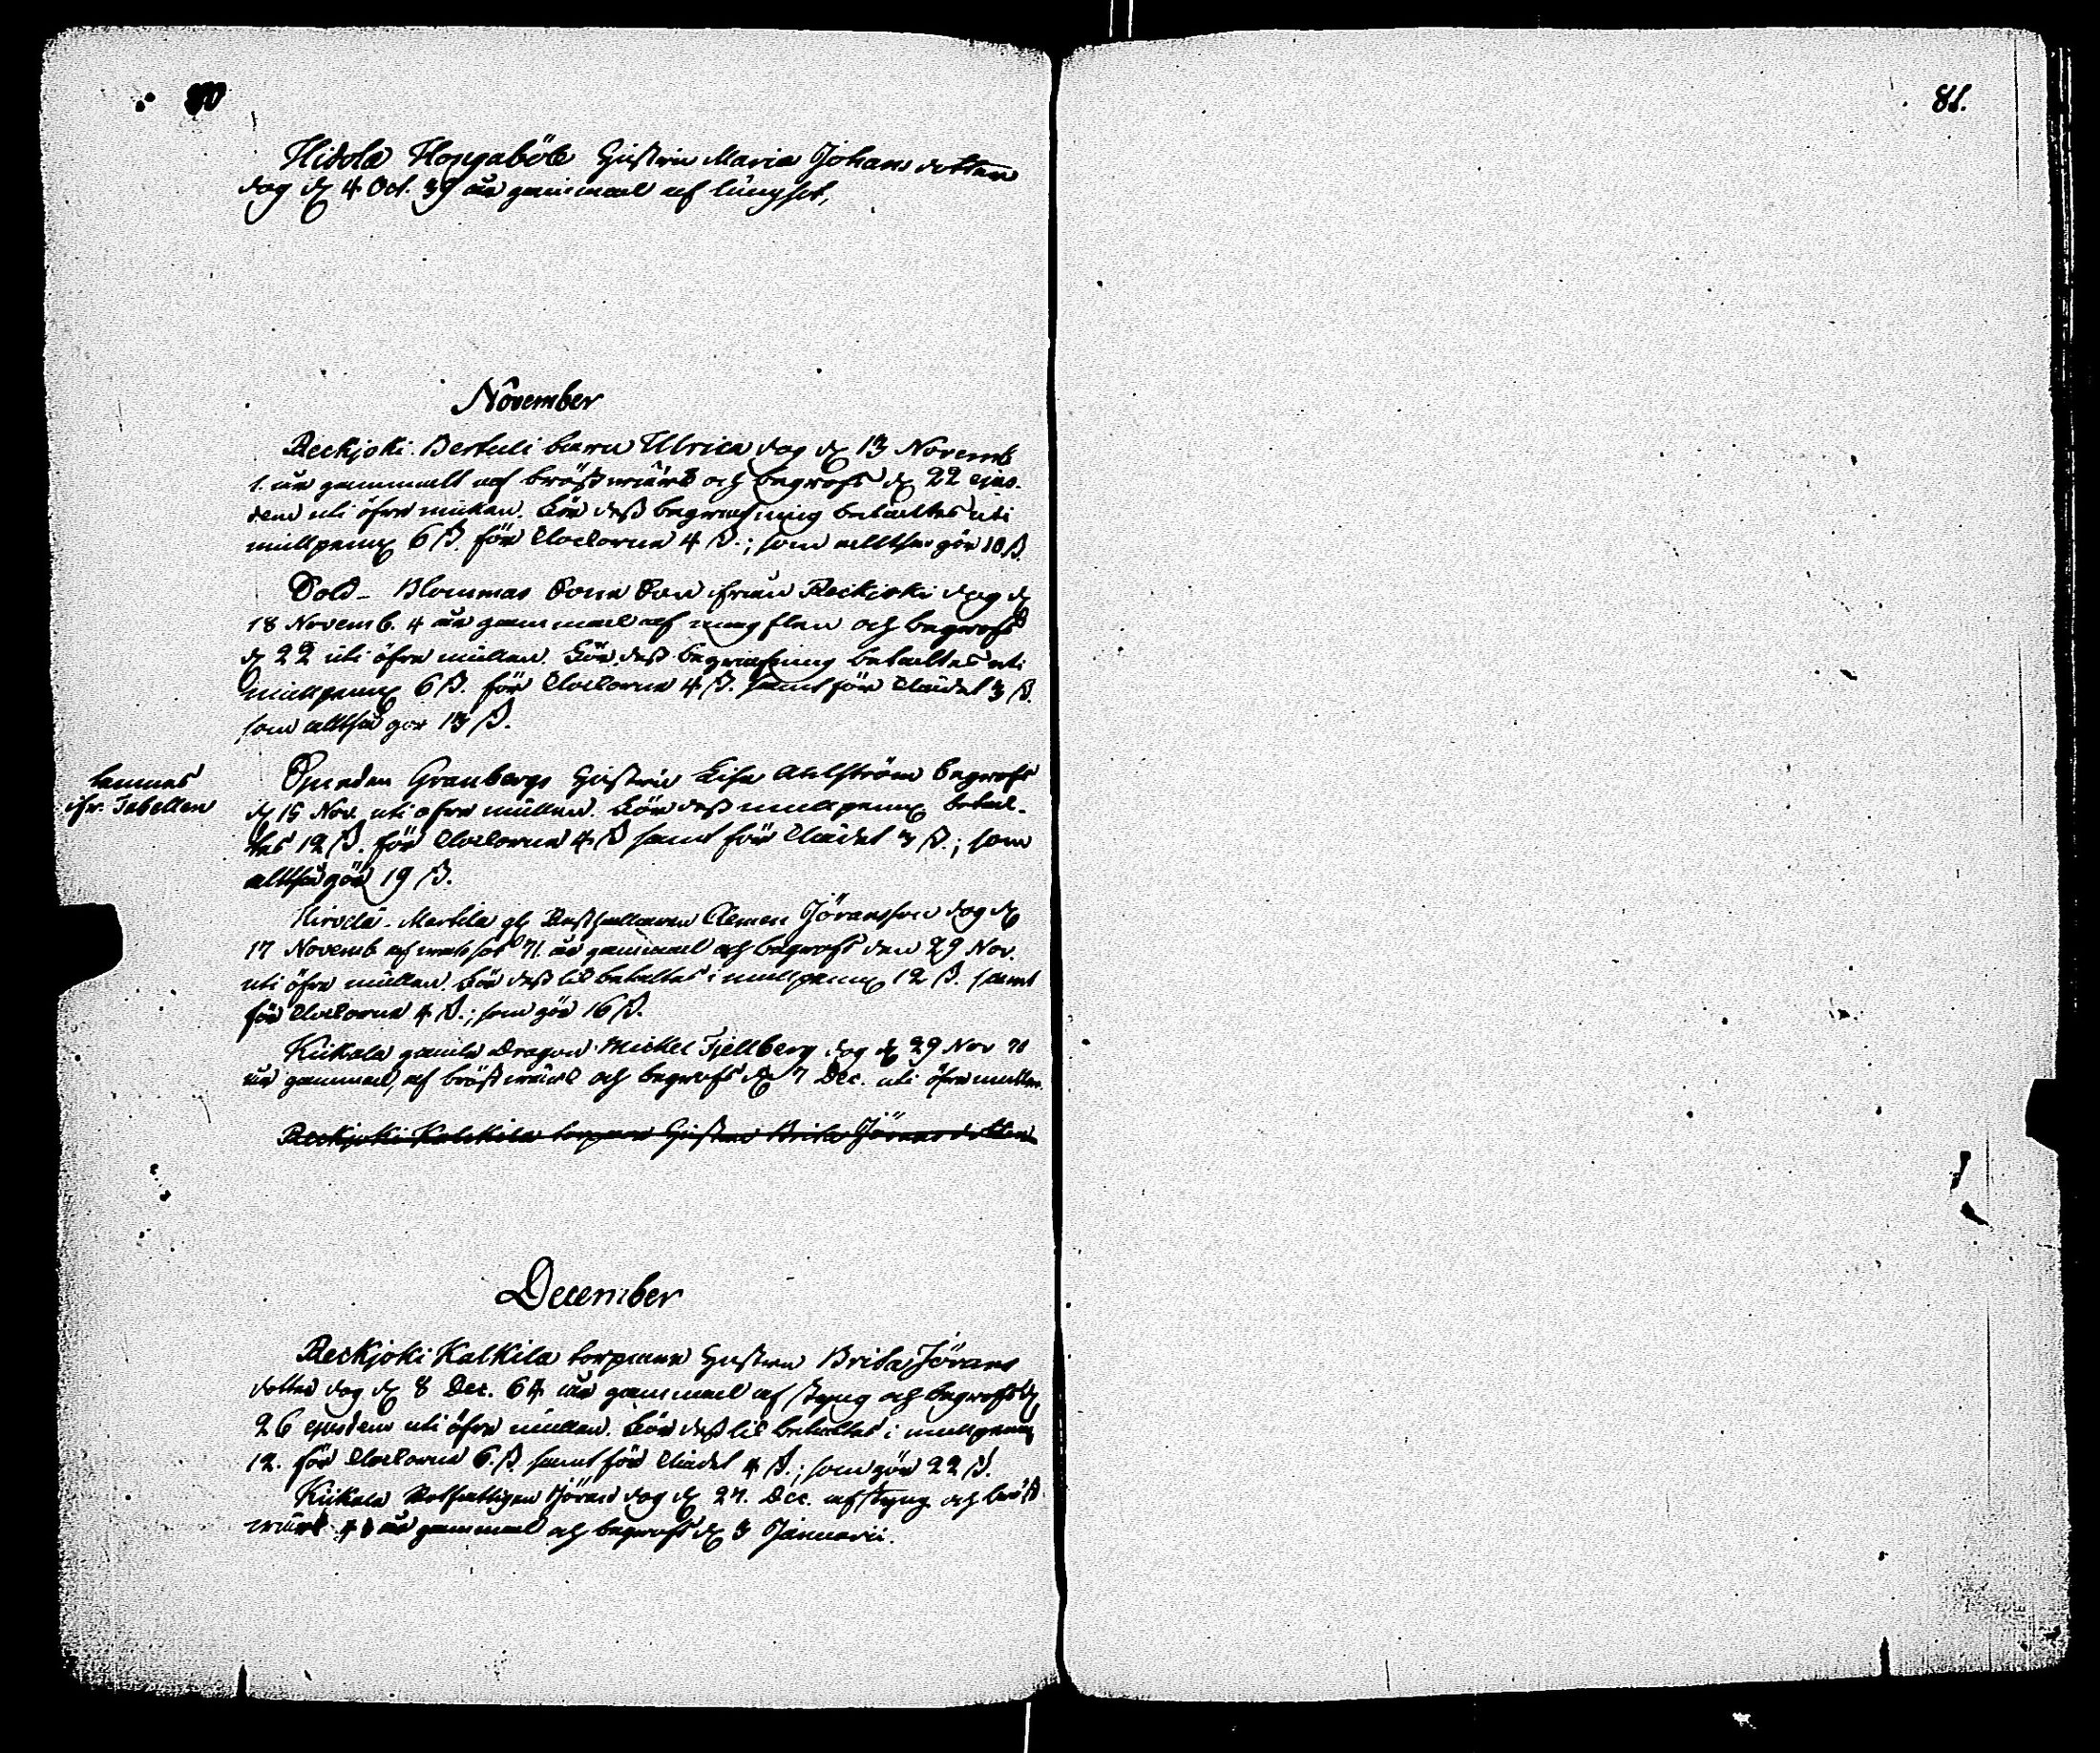 80
81.
Hidola Hongaböle Hustru Maria Johans dotter
dog d. 4 Oct. 39 år gammal af lungsot,
November
Reckjoki Bertuli barn Ulrica dog d. 13 Novemb
1. år gammalt af bröstwärk och begrofs d. 22 ejus-
dem uti öfre mullen. För dess begrafning betaltes uti
mullpenng 6 ß. för Clockorna 4 ß.; som alltså gör 10 ß.
Sold. Blommas Sone ifrån Reckjoki dog d.
18 Novemb. 4 år gammal af och begrofs
d. 22 uti öfre mullen. För dess begrafning betaltes uti
mullpenng 6 ß. för Clockorna 4 ß. samt för Klädet 3 ß.
som alltså gör 13 ß.
lemnas
ifr. Tabellen
Granbergs Hustru Lisa Ahlström begrofs
d. 15 Nov. uti öfre mullen. För dess mullpenng betal-
tes 12 ß. för Clockorna 4 ß samt för Klädet 3 ß.; som
alltså gör 19 ß.
Hirvelä Mertila gl. Rusthållaren Clemen Jöransson dog d.
17 Novemb af 71. år gammal och begrofs den 29 Nov.
uti öfre mullen. För dess lik betaltes i mullpenng 12 ß. samt
för Clockorna 4 ß.; som gör 16 ß.
Kiikala gamla Dragon Michel Fjellberg dog d. 29 Nov 71
år gammal, af bröstwärk och begrofs d. 7 Dec. uti öfre mullen.
Reckjoki Kalkila torpare Hustru Brita Jörans dotter
December
Reckjoki Kalkila torpare Hustru Brita Jörans
dotter dog d. 8 Dec. 64 år gammal af styng och begrofs d.
26 ejusdem uti öfre mullen. För dess lik betaltes i mullpenng
12. för Clockorna 6. ß. samt för Klädet 4 ß.; som gör 22 ß.
Kiikala Rotfattigen Jöran dog d. 27. Dec. af styng och bröst
wärk år gammal och begrofs d. 3 Januarii.